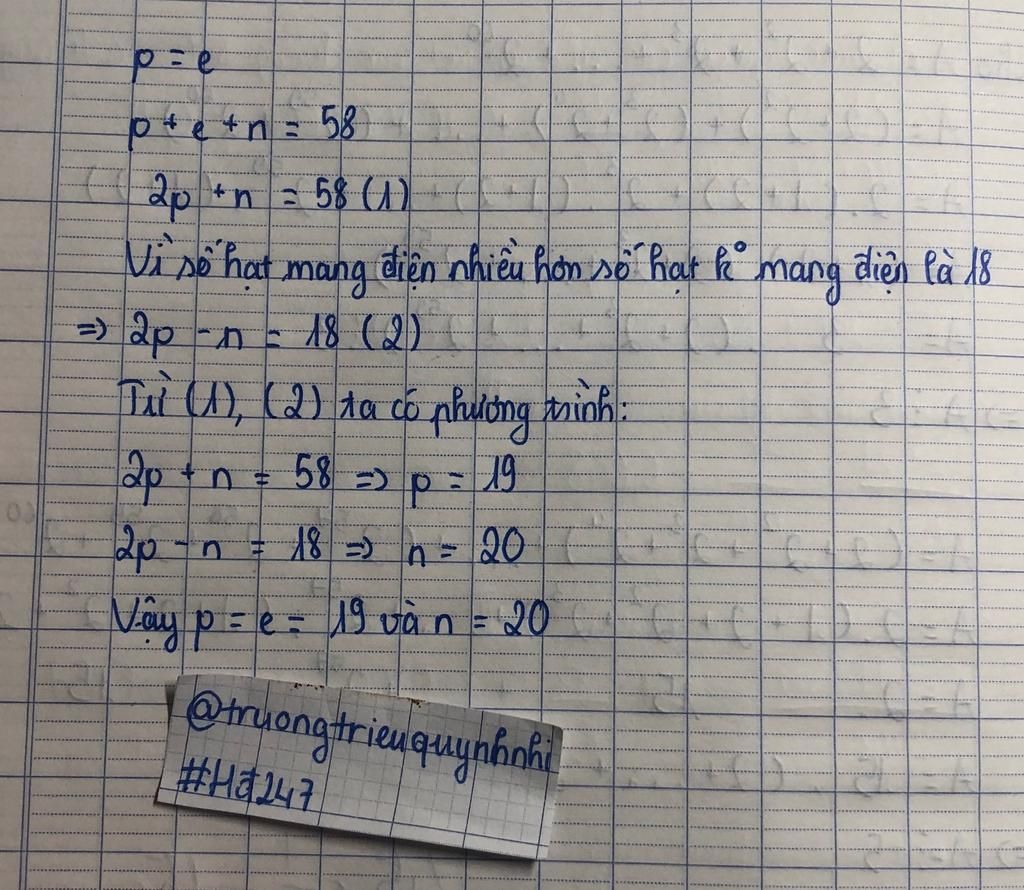 p = e
p + e + n = 58
2p + n = 58 (1)
Vì số hạt mang điện nhiều hơn số hạt k° mang điện là 18
=> 2p - n = 18 (2)
Từ (1), (2) ta có phương trình:
2p + n = 58 => p = 19
2p - n = 18 => n = 20
Vậy p = e = 19 và n = 20
@truongtrieuquynhnhi
#Hđ247